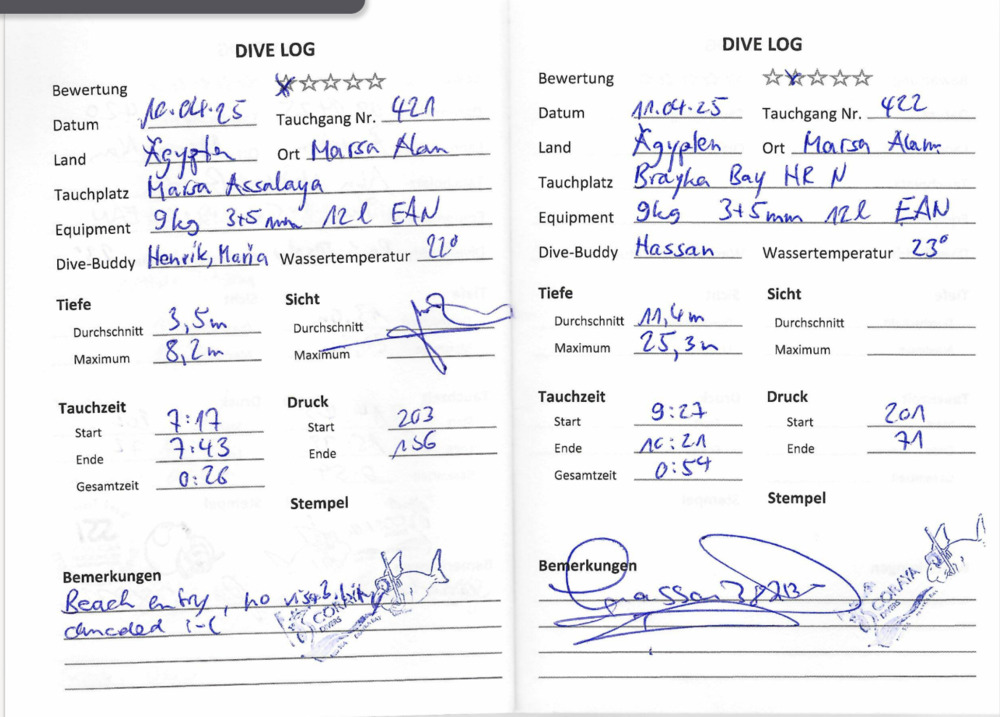 DIVE LOG
Bewertung
Datum 10.04.25 Tauchgang Nr. 421
Land Ägypten Ort Marsa Alam
Tauchplatz Marsa Assalaya
Equipment 9kg 3+5mm 12l EAN
Dive-Buddy Henrik, Maria Wassertemperatur 22°
Tiefe Sicht
Durchschnitt 3,5m Durchschnitt
Maximum 8,2m Maximum
Tauchzeit Druck
Start 7:17 Start 203
Ende 7:43 Ende 156
Gesamtzeit 0:26
Stempel
Bemerkungen
Beach entry, no
canceled :-(
CORAYA
DIVERS
DIVE LOG
Bewertung
Datum 11.04.25 Tauchgang Nr. 422
Land Ägypten Ort Marsa Alam
Tauchplatz Brayka Bay HR N
Equipment 9kg 3+5mm 12l EAN
Dive-Buddy Hassan Wassertemperatur 23°
Tiefe Sicht
Durchschnitt 11,4m Durchschnitt
Maximum 25,3m Maximum
Tauchzeit Druck
Start 9:27 Start 201
Ende 10:21 Ende 71
Gesamtzeit 0:54
Stempel
Bemerkungen
CORAYA
DIVERS